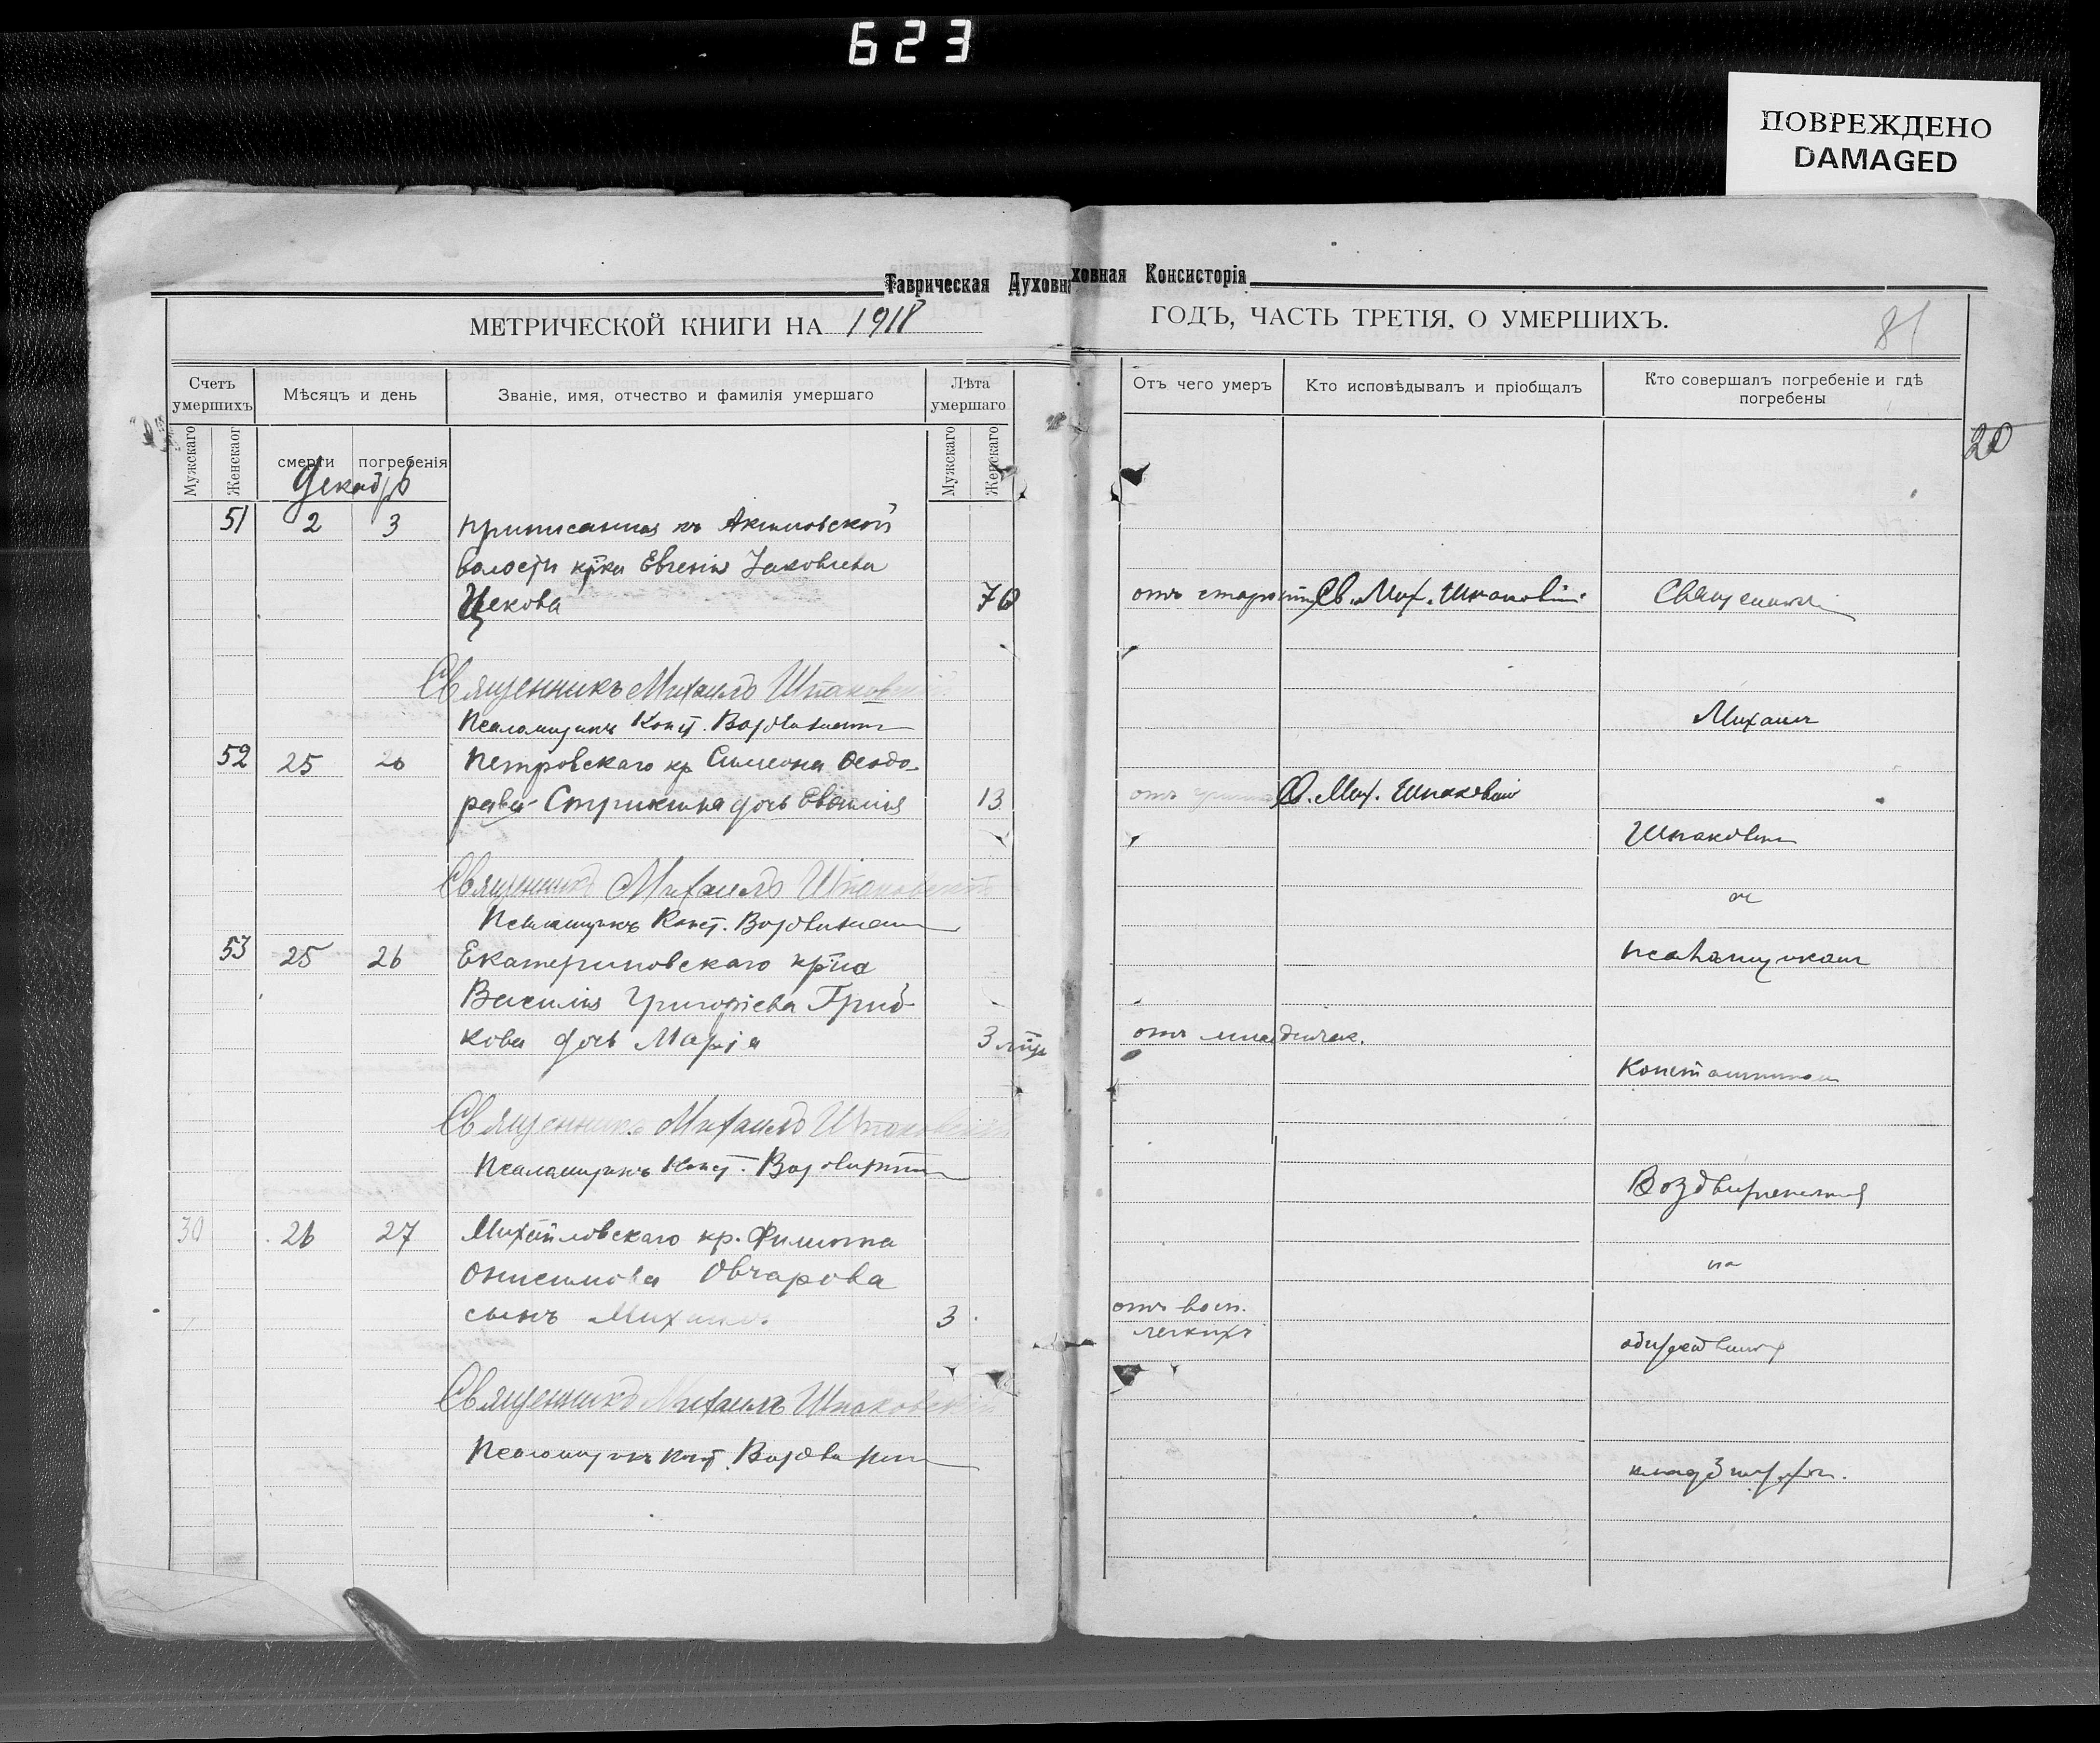 623
ПОВРЕЖДЕНО
DAMAGED
Таврическая Духовная
ховная Консисторія
МЕТРИЧЕСКОЙ КНИГИ НА 1918
ГОДЪ, ЧАСТЬ ТРЕТІЯ, О УМЕРШИХЪ.
81
20
Счетъ умершихъ
Мѣсяцъ и день
Званіе, имя, отчество и фамилія умершаго
Лѣта умершаго
Отъ чего умеръ
Кто исповѣдывалъ и пріобщалъ
Кто совершалъ погребеніе и гдѣ погребены
Мужскаго
Женскаог
смерти
погребенія
Мужскаго
Женскаго
Декабрь
51 2 3 приписанная къ Акимовской
волости кр̃ка Евгенія Іаковлева
Цекова 70 отъ старости Св. Мих. Шпаковскій Священникъ
Священникъ Михаилъ Шпаковскій
Псаломщикъ Конст. Воздвиженскій
Михаилъ
52 25 26 Петровскаго кр. Симеона Ѳеодо-
рова дочь 13 Св. Мих. Шпаковскій
Шпаковскій
Священникъ Михаилъ Шпаковскій
Псаломщикъ Конст. Воздвиженскій
съ
53 25 26 Екатериновскаго кр̃на псаломщикомъ
Василія Григоріева Грид-
кова дочь Марія 3 отъ младенческ.
Константиномъ
Священникъ Михаилъ Шпаковскій
Псаломщикъ Конст. Воздвиженскій
Воздвиженскимъ
30 26 27 Михайловскаго кр. Филиппа
Онисимова Овчарова
на
сынъ Михаилъ 3 отъ восп.
легкихъ
общественномъ
Священникъ Михаилъ Шпаковскій
Псаломщикъ Конст. Воздвиженскій
кладбищѣ.